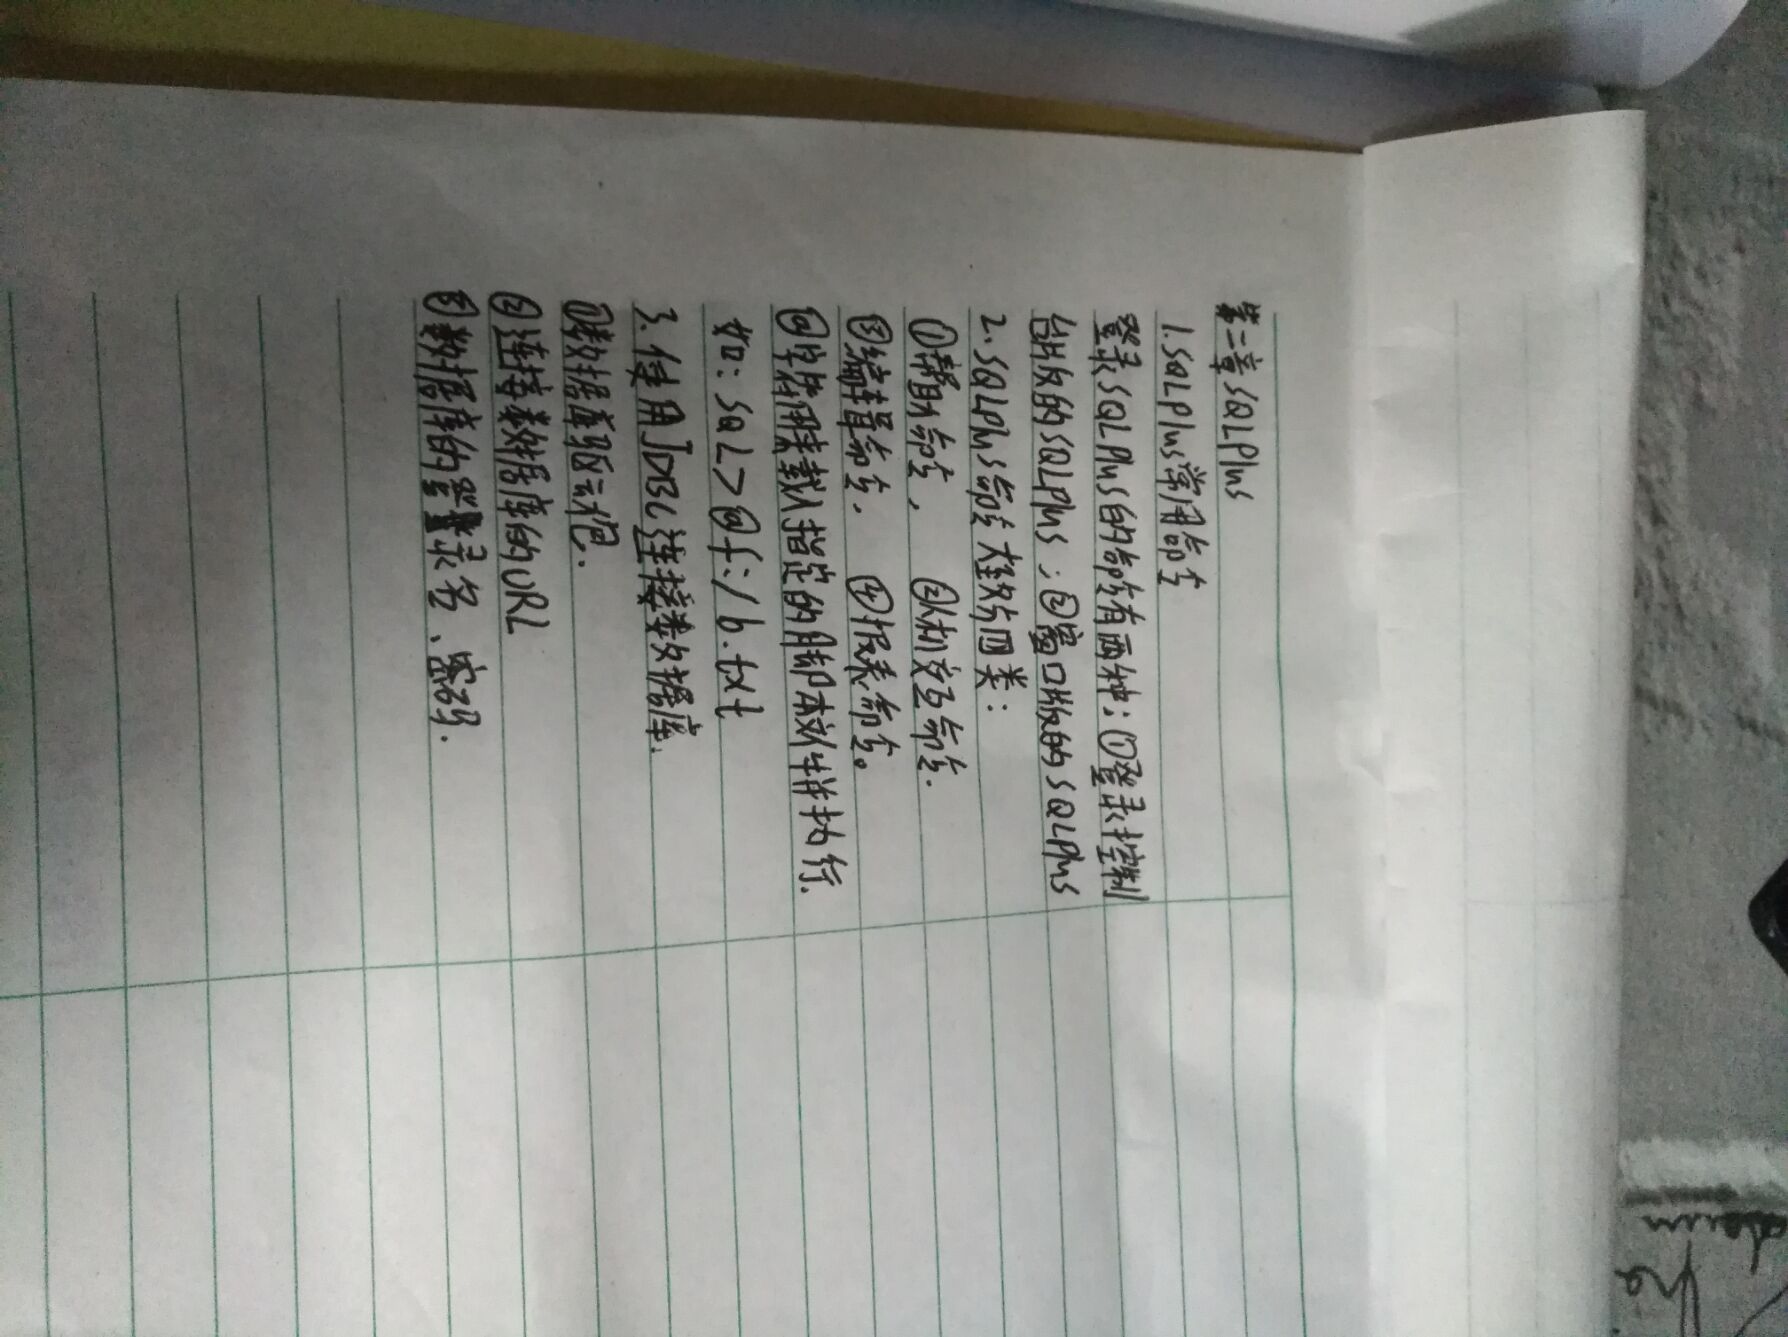 第二章SQLPlus
1.SQLPlus常用命令
登录SQLPlus的命令有两种:①登录控制
台版的SQLPlus;②窗口版的SQLPlus
2.SQLPlus命令大致分四类:
①帮助命令, ②人机交互命令.
③编辑命令, ④报表命令。
@字符用来载入指定的脚本文件并执行.
如:SQL>@f:/b.txt
3.使用JDBC连接数据库.
①数据库驱动包.
②连接数据库的URL
③数据库的登录名、密码.